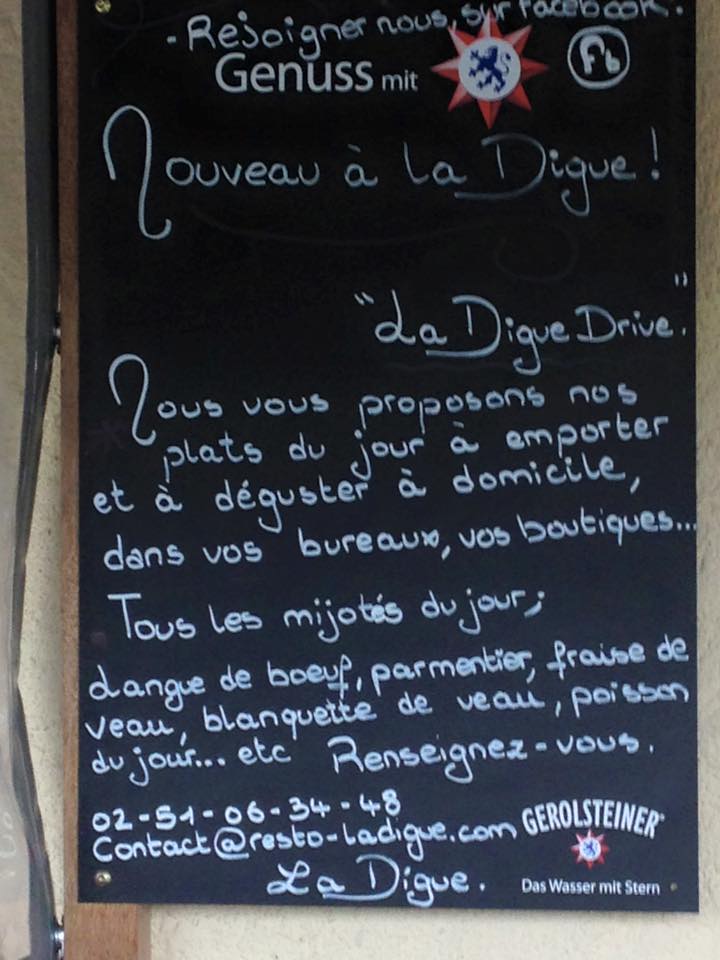 - Rejoigner nous, sur facebook.
Genuss mit
fb
Nouveau à la Digue !
"La Digue Drive."
Nous vous proposons nos
plats du jour à emporter
et à déguster à domicile,
dans vos bureaux, vos boutiques...
Tous les mijotés du jour;
Langue de boeuf, parmentier, fraise de
veau, blanquette de veau, poisson
du jour... etc Renseignez-vous.
02-51-06-34-48
Contact@resto-ladigue.com
GEROLSTEINER
La Digue.
Das Wasser mit Stern